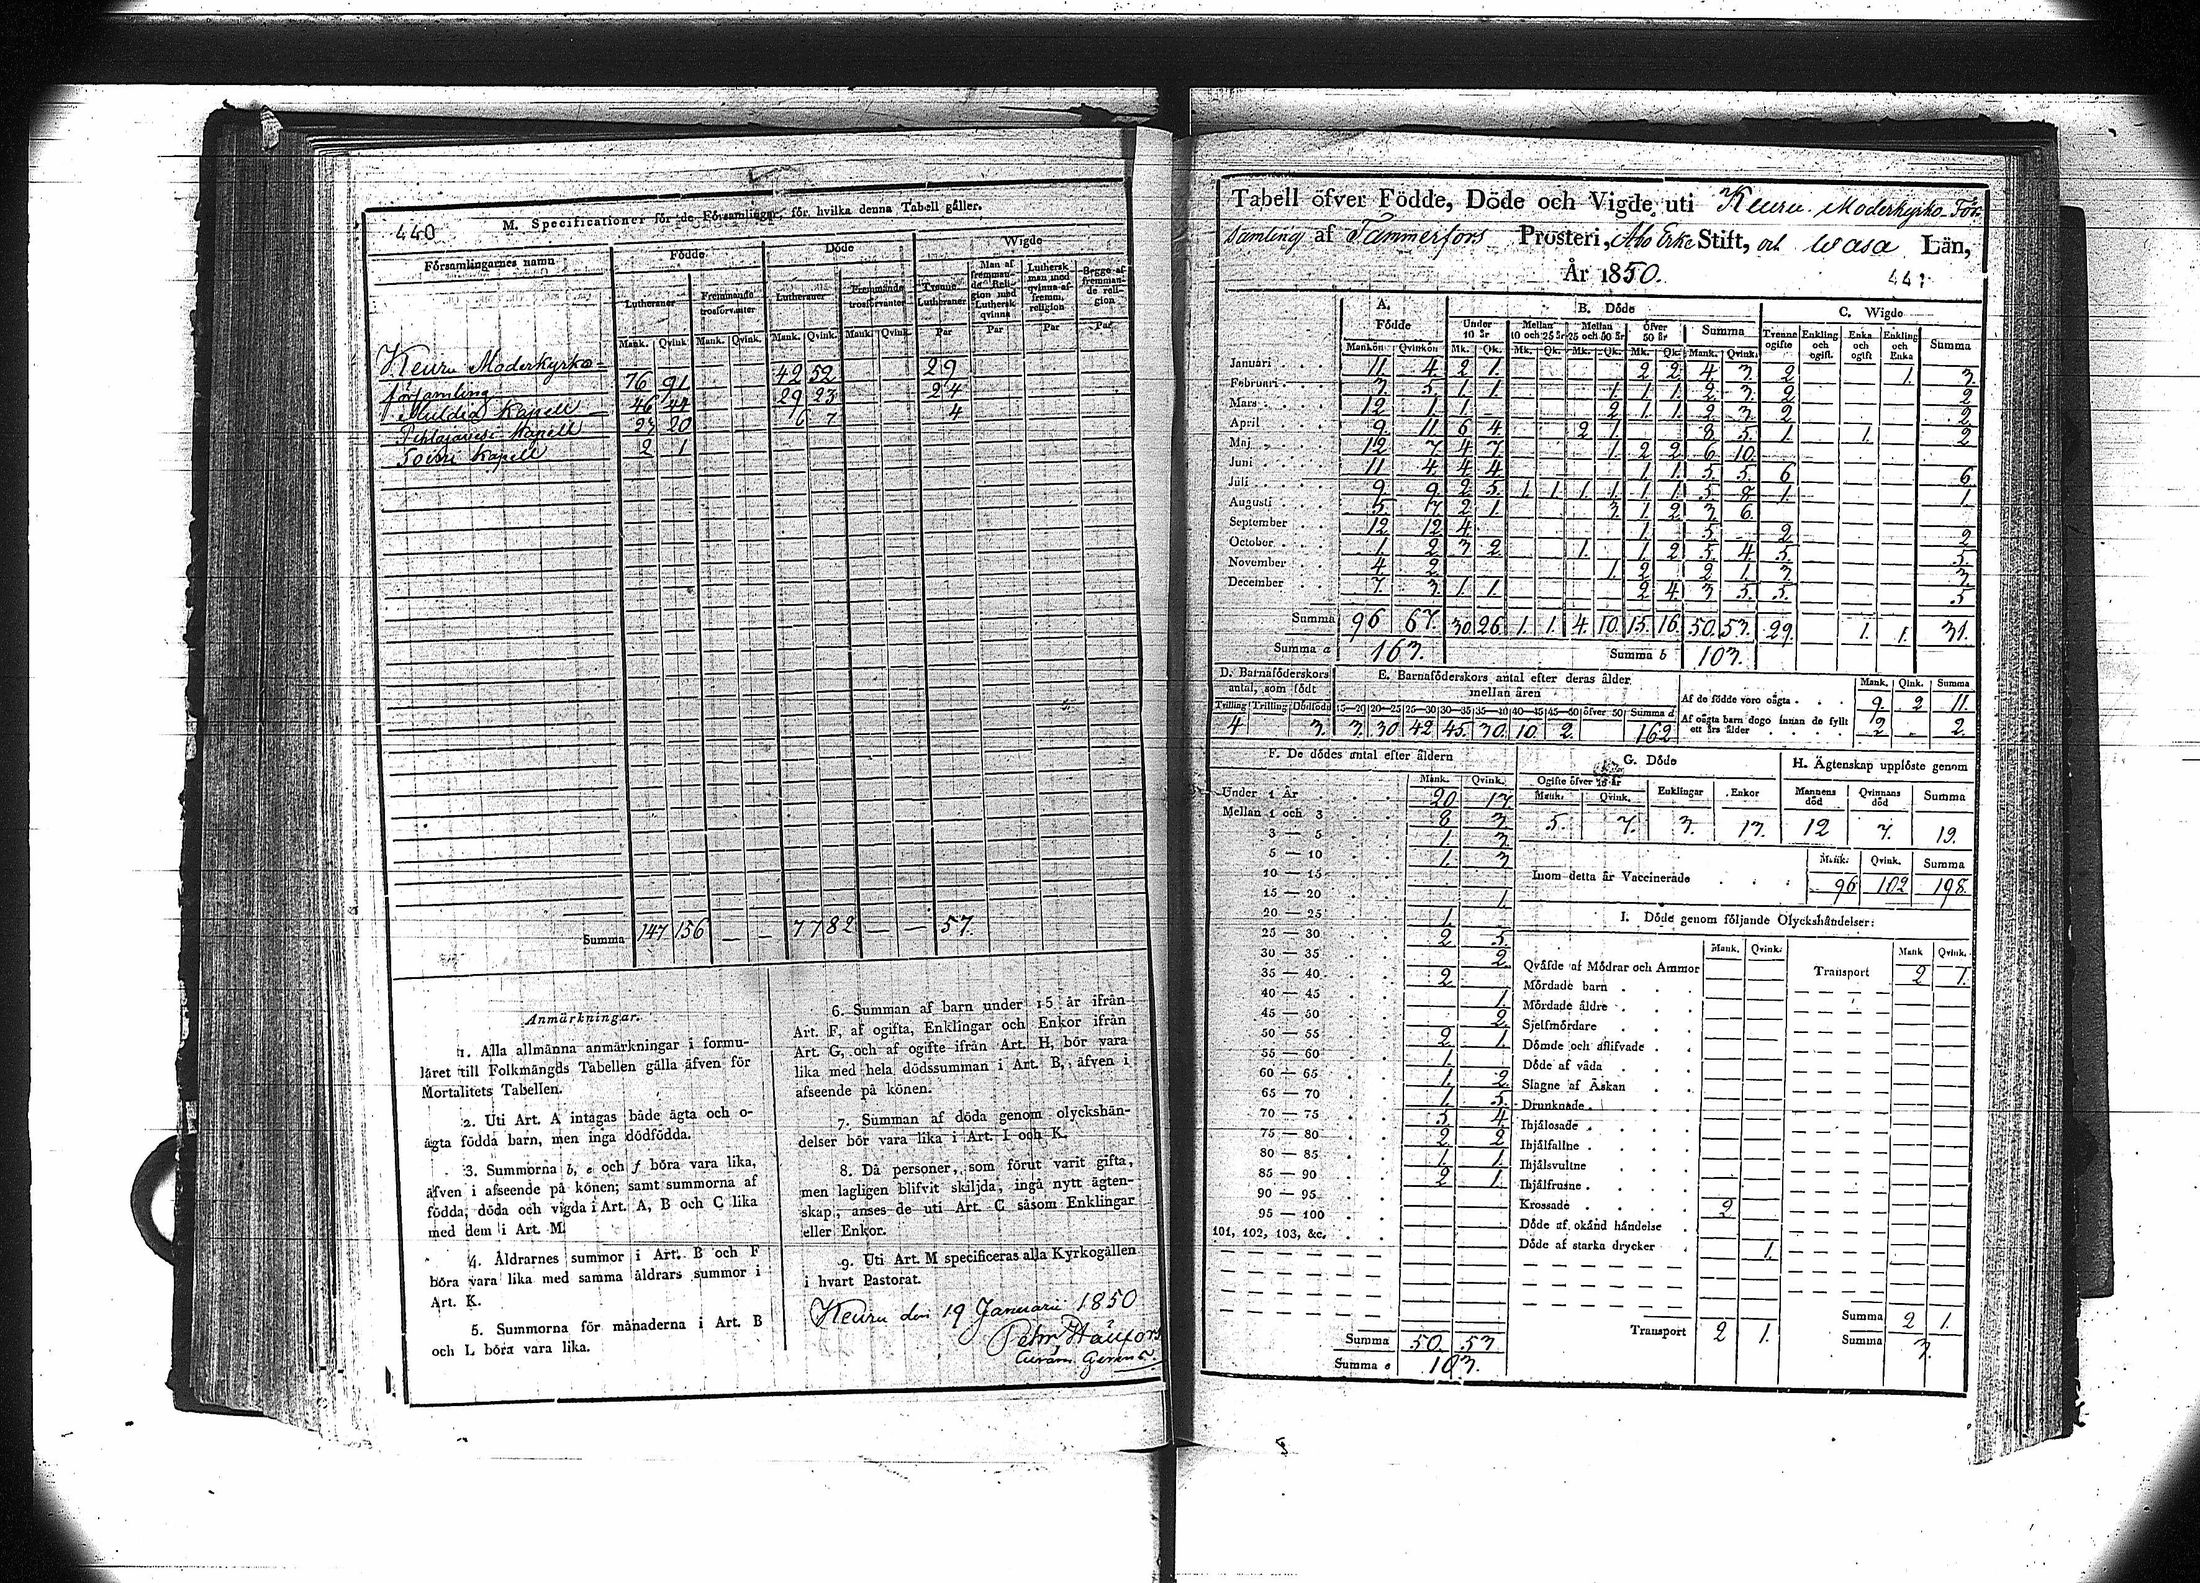 440
M. Specificationer för de Församlingar, för hvilka denna Tabell gäller.
Församlingarnes namn | Födde | Döde | Wigde
Lutheraner | Fremmande trosförvanter | Lutheraner | Fremmande trosförvanter | Tvenne Lutheraner | Man af fremmande Religion med Luthersk qvinna | Luthersk man med qvinna af fremm. religion | Begge af fremmande religion
Mank. | Qvink. | Mank. | Qvink. | Mank. | Qvink. | Mank. | Qvink. | Par | Par | Par | Par
Keuru Moderkyrko=
församling 76 91 42 52 29
Multia Kapell 46 44 29 23 24
Pihlajavesi Kapell 23 20 6 7 4
2 1
Summa 147 156 — — 77 82 — — 57.
Anmärkningar.
1. Alla allmänna anmärkningar i formu-
läret till Folkmängds Tabellen gälla äfven för
Mortalitets Tabellen.
2. Uti Art. A intagas både ägta och o-
ägta födda barn, men inga dödfödda.
3. Summorna b, e och f böra vara lika,
äfven i afseende på könen; samt summorna af
födda, döda och vigda i Art. A, B och C lika
med dem i Art. M.
4. Åldrarnes summor i Art. B och F
böra vara lika med samma åldrars summor i
Art. K.
5. Summorna för månaderna i Art. B
och L böra vara lika.
6. Summan af barn under 15 år ifrån
Art. F, af ogifta, Enklingar och Enkor ifrån
Art. G, och af ogifte ifrån Art. H, bör vara
lika med hela dödssumman i Art. B, äfven i
afseende på könen.
7. Summan af döda genom olyckshän-
delser bör vara lika i Art. I och K.
8. Då personer, som förut varit gifta,
men lagligen blifvit skiljda, ingå nytt ägten-
skap, anses de uti Art. C såsom Enklingar
eller Enkor.
9. Uti Art. M specificeras alla Kyrkogällen
i hvart Pastorat.
Keuru den 19 Januarii 1850
Tabell öfver Födde, Döde och Vigde, uti Keuru Moderkyrko För-
samling af Tammerfors Prosteri, Åbo Erke Stift, och Wasa Län,
År 1850.
441
A. Födde | B. Döde | C. Wigde
Mankön | Qvinkön | Under 10 år | Mellan 10 och 25 år | Mellan 25 och 50 år | öfver 50 år | Summa | Tvenne ogifte | Enkling och ogift. | Enka och ogift | Enkling och Enka | Summa
Mk. | Qk. | Mk. | Qk. | Mk. | Qk. | Mk. | Qk. | Mank. | Qvink.
Januari 11 4 2 1. 2 2 4 3. 2 1. 3.
Februari 3. 5 1 1 1. 1 1. 2 3. 2 2
Mars 12 1. 1. 2 1 1. 2 3. 2 2
April 9 11 6 4 2 1. 8 5. 1. 1. 2
Maj 12 7 4 7. 1. 2 2 6 10.
Juni 11 4 4 4 1. 1. 5. 5. 6 6
Juli 9 9 2 5. 1. 1. 1. 1. 1 1. 5 8 1. 1.
Augusti 5 7 2 1. 3. 1. 2 3. 6.
September 12 12 4. 1. 5. 2 2
October 1. 2 3 2. 1. 1. 2 5 4 5. 5.
November 4 2 1. 2 2 1. 3. 3.
December 7. 3. 1 1. 2 4. 3 5. 5. 5
Summa 96 67. 30 26. 1. 1. 4. 10 15. 16 50. 53. 29. 1. 1. 31.
Summa a 163. Summa b 103.
D. Barnaföderskors antal, som födt
Trilling | Trilling | Dödfödt
4 3.
E. Barnaföderskors antal efter deras ålder mellan åren
15—20 | 20—25 | 25—30 | 30—35 | 35—40 | 40—45 | 45—50 | öfver 50 | Summa d
3. 30 42 45. 30. 10. 2. 162
Mank. | Qink. | Summa
Af de födde voro oägta 9 2 11.
Af oägta barn dogo innan de fyllt ett års ålder 2 . 2.
F. De dödes antal efter åldern
Mank. | Qvink.
Under 1 År 20 17.
Mellan 1 och 3 8 3.
3 — 5 1. 3.
5 — 10 1. 3
10 — 15
15 — 20 1.
20 — 25 1.
25 — 30 2 5.
30 — 35 2.
35 — 40 2
40 — 45 1.
45 — 50 2.
50 — 55 2 1.
55 — 60 1.
60 — 65 1. 2
65 — 70 1. 5.
70 — 75 5 4.
75 — 80 2 2
80 — 85 1. 1.
85 — 90 2 1.
90 — 95
95 — 100
101, 102, 103, &c.
Summa 50. 53
Summa e 103.
G. Döde
Ogifte öfver 15 år | Enklingar | Enkor
Mank. | Qvink.
5. 7. 3. 13.
H. Ägtenskap upplöste genom
Mannens död | Qvinnans död | Summa
12 7. 19.
Mank. | Qvink. | Summa
Inom detta år Vaccinerade 96 102 198.
I. Döde genom följande Olyckshändelser:
Mank. | Qvink. | Mank | Qvink.
Qväfde af Mödrar och Ammor
Transport 2 1.
Mördade barn
Mördade äldre
Sjelfmördare
Dömde och aflifvade
Döde af våda
Slagne af Åskan
Drunknade
Ihjälosade
Ihjälfallne
Ihjälsvultne
Ihjälfrusne
Krossade 2
Döde af okänd händelse
Döde af starka drycker 1.
Transport 2 1.
Summa 2 1.
Summa 3.